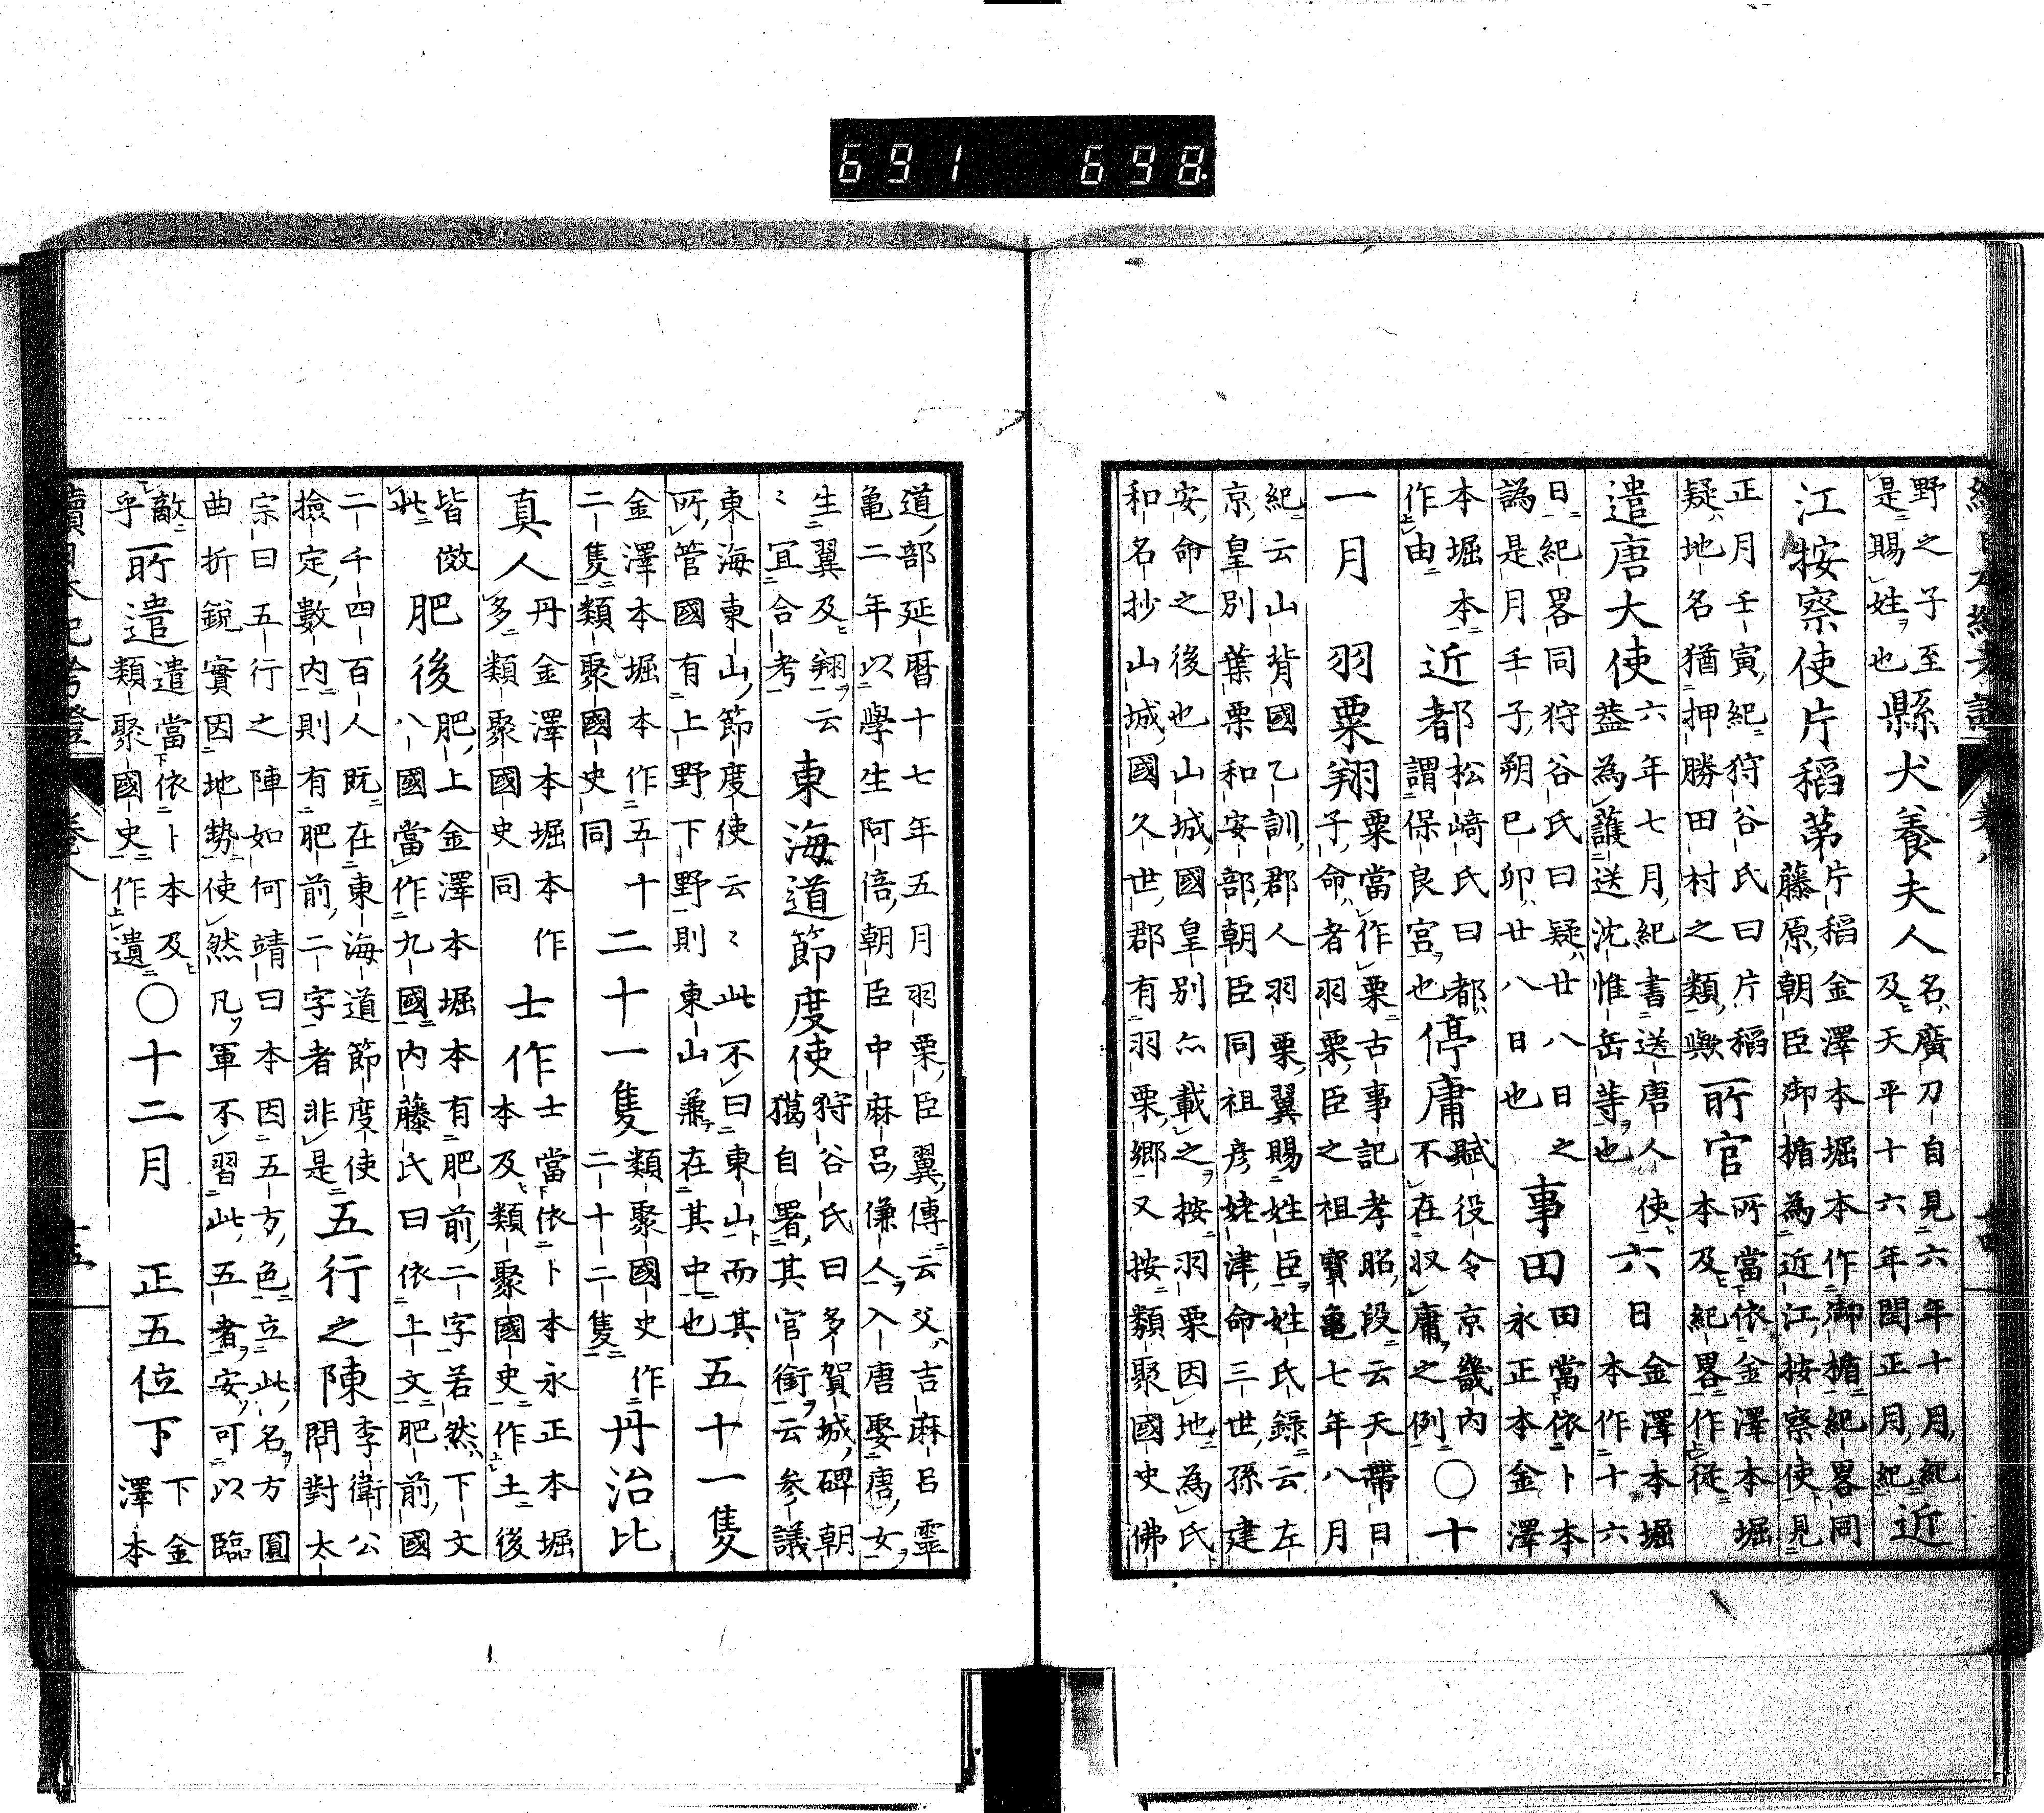 續日本紀考證 卷八 十四
野之子至是賜姓也縣犬養夫人名廣刀自見六年十月紀及天平十六年閏正月紀近
江按察使片稻第片稻金澤本堀本作御楯紀畧同藤原朝臣御楯為近江按察使見
正月壬寅紀狩谷氏曰片稻疑地名猶押勝田村之類歟所官所當依金澤本堀本及紀畧作從
遣唐大使六年七月紀書送唐人使蓋為護送沈惟岳等也六日金澤本堀本作十六
日紀畧同狩谷氏曰疑廿八日之譌是月壬子朔巳卯廿八日也事田田當依卜本永正本金澤
本堀本作由近都松﨑氏曰都謂保良宮也停庸賦役令京畿内不在収庸之例〇十
一月 羽粟翔粟當作栗古事記孝昭段云天帶日子命者羽栗臣之祖寶龜七年八月
紀云山背國乙訓郡人羽栗翼賜姓臣姓氏録云左京皇別葉栗和安部朝臣同祖彦姥津命三世孫建
安命之後也山城國皇別亦載之按羽栗因地為氏和名抄山城國久世郡有羽栗郷又按類聚國史佛
道部延暦十七年五月羽栗臣翼傳云父吉麻呂靈亀二年以學生阿倍朝臣中麻呂傔人入唐娶唐女
生翼及翔云〻宜合考東海道節度使狩谷氏曰多賀城碑朝獦自署其官銜云参議
東海東山節度使云〻此不曰東山而其所管國有上野下野則東山兼在其中也五十一隻
金澤本堀本作五十二隻類聚國史同二十一隻類聚國史作二十二隻丹治比
真人丹金澤本堀本作多類聚國史同士作士當依卜本永正本堀本及類聚國史作土後
皆倣此肥後肥上金澤本堀本有肥前二字若然下文八國當作九國内藤氏曰依上文肥前國
二千四百人既在東海道節度使撿定數内則有肥前二字者非是五行之陳李衛公問對太
宗曰五行之陣如何靖曰本因五方色立此名方圓曲折鋭實因地勢使然凡軍不習此五者安可以臨
敵乎所遣遣當依卜本及類聚國史作遺〇十二月 正五位下下金澤本
續日本紀考證 卷八 十五
691 698